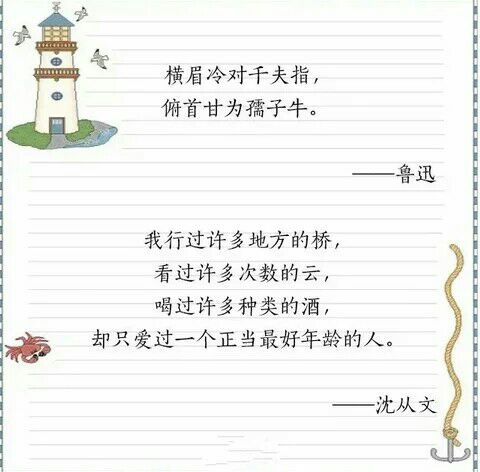 横眉冷对千夫指，
俯首甘为孺子牛。
——鲁迅
我行过许多地方的桥，
看过许多次数的云，
喝过许多种类的酒，
却只爱过一个正当最好年龄的人。
——沈从文